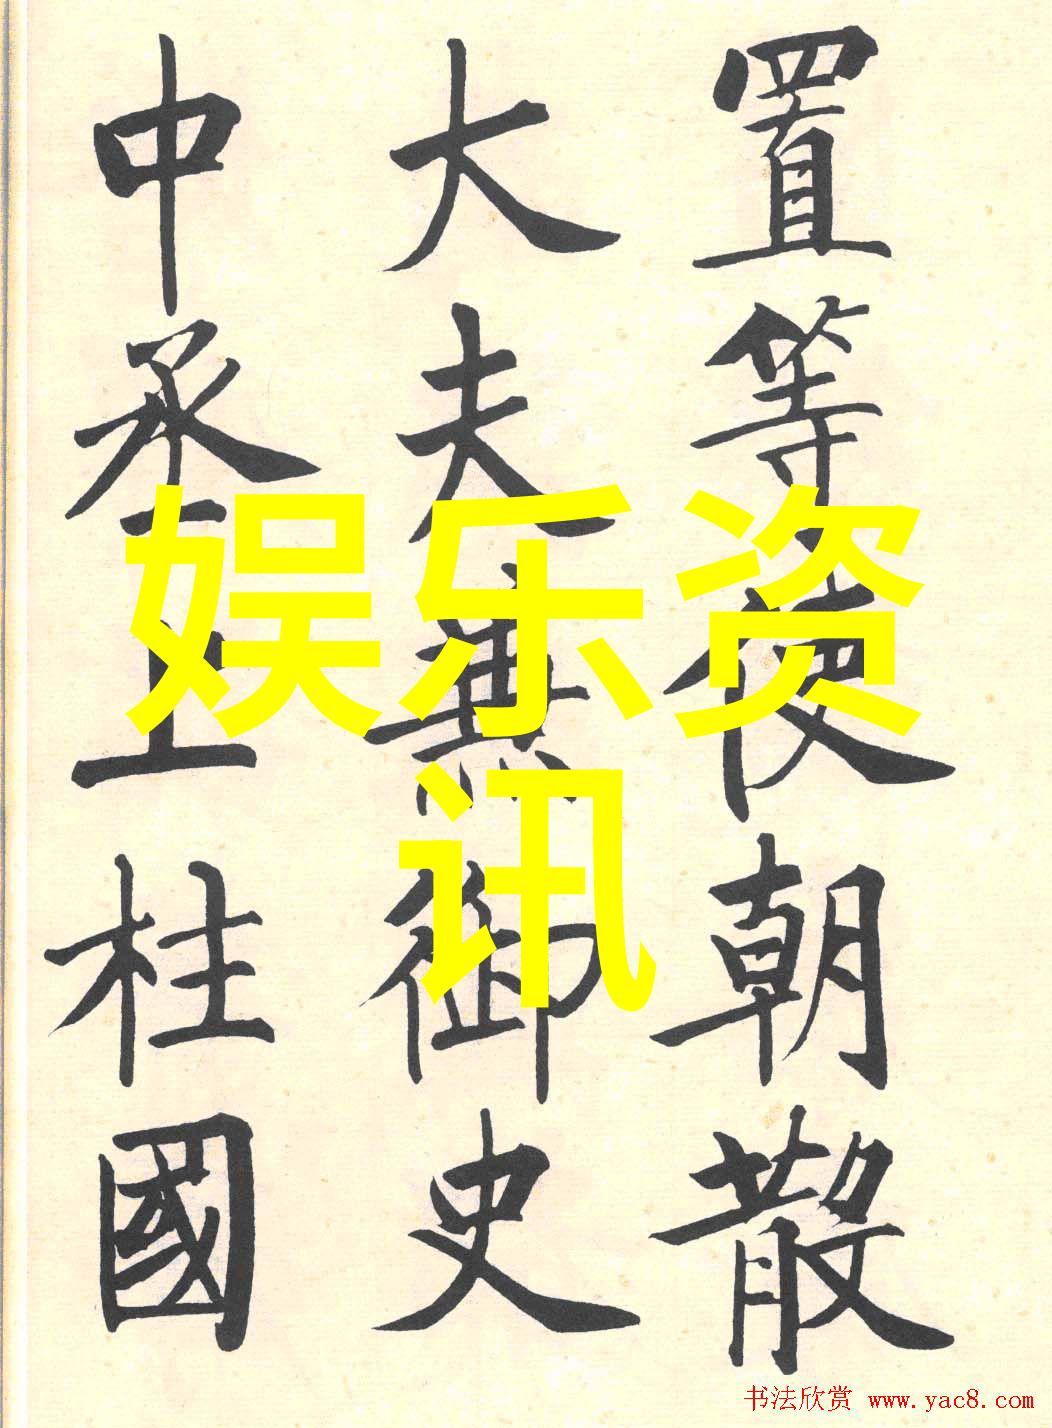 置等使朝散
大夫兼御史
中丞上柱國
娱乐资
讯
书法欣赏 www.yac8.com